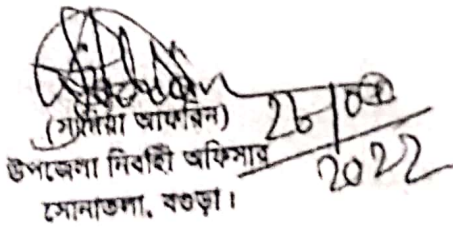 (সাদিয়া আফরিন)
উপজেলা নির্বাহী অফিসার
সোনাতলা, বগুড়া।
2022